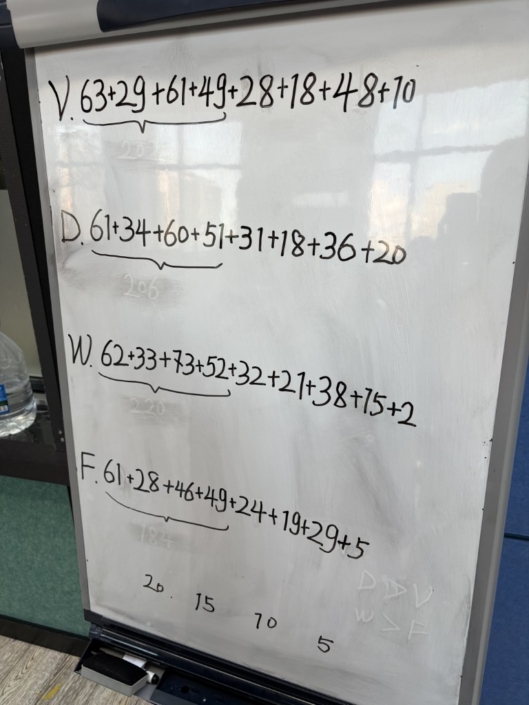 V. 63+29+61+49+28+18+48+10
202
D. 61+34+60+51+31+18+36+20
206
W. 62+33+73+52+32+21+38+15+2
220
F. 61+28+46+49+24+19+29+5
184
D > V
W > F
20. 15 10 5